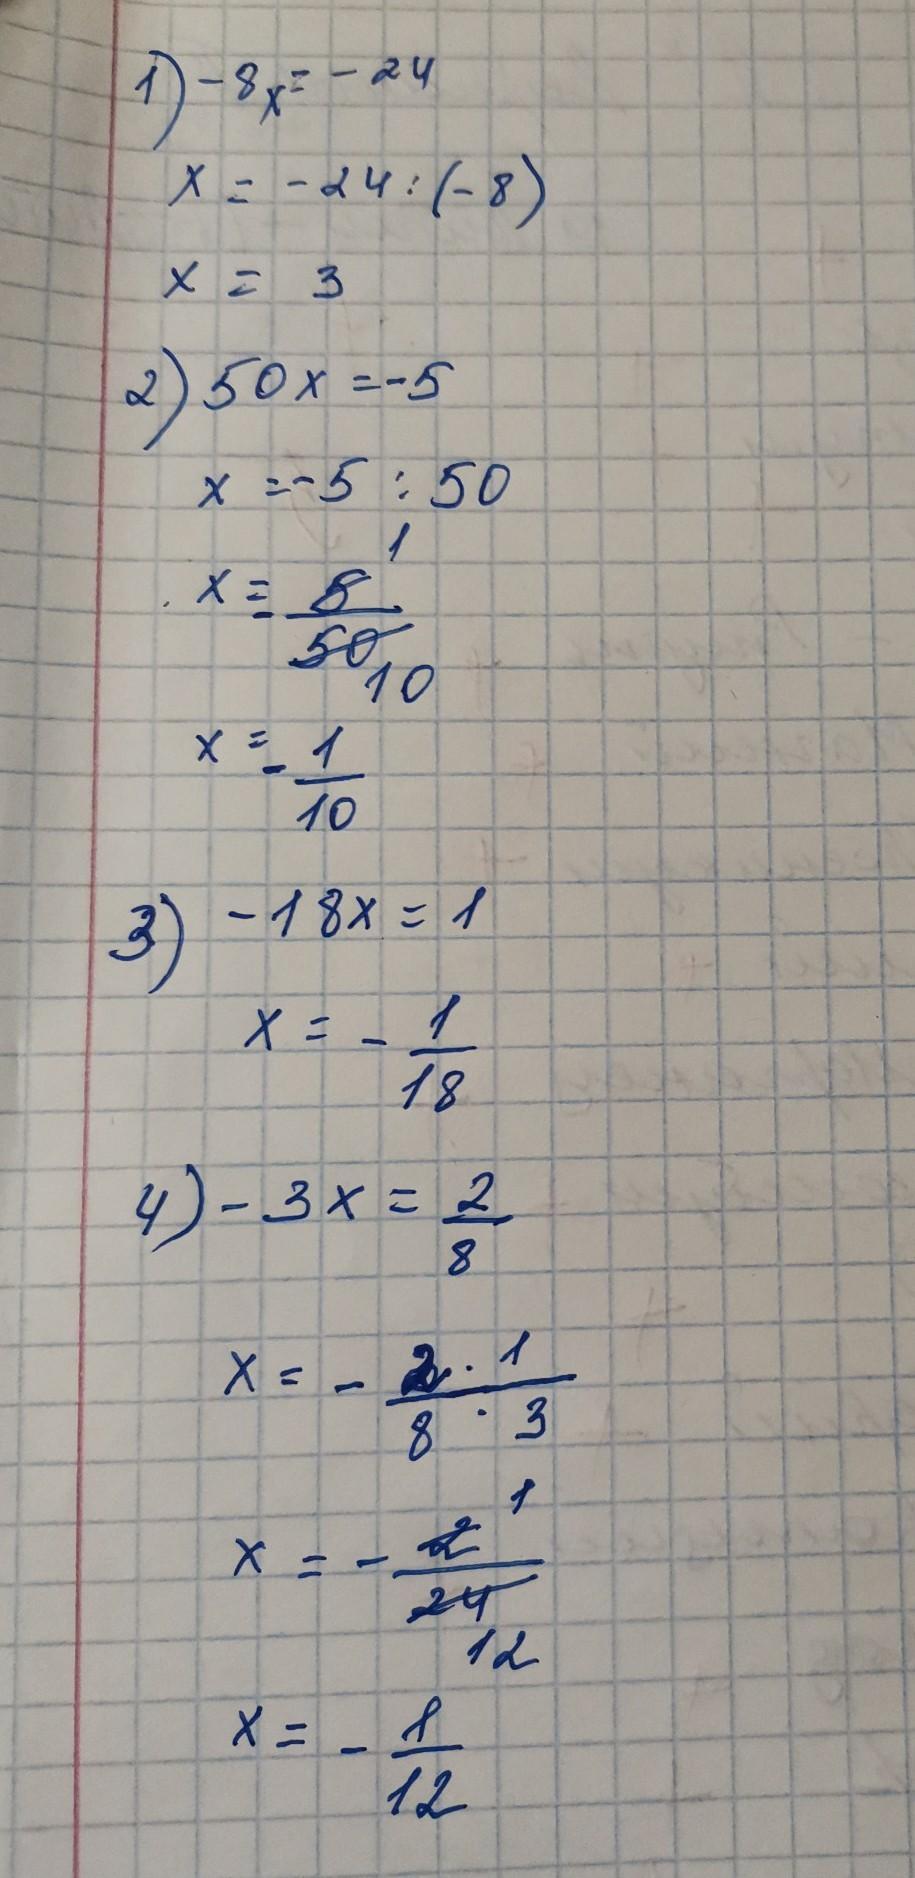 1) -8x = -24
x = -24 : (-8)
x = 3
2) 50x = -5
x = -5 : 50
1
x = - 5/50
10
x = - 1/10
3) -18x = 1
x = - 1/18
4) -3x = 2/8
x = - 2 · 1 / 8 · 3
1
x = - 2/24
12
x = - 1/12